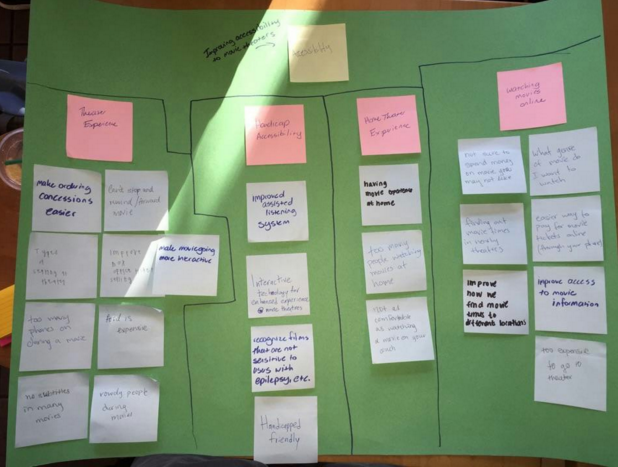 Improving accessibility
in movie theaters
Theater
Experience
make ordering
concessions
easier
Can't stop and
rewind
make moviegoing
more ineractive
too many
phones on
during a movie
is
expensive
no subtitles
in many
movies
rowdy people
during
movie
Handicap
Accessibility
Improved
assisted
listening
system
Interactive
technology for
enhanced experience
@ movie theaters
recognize films
that are not
sensitive to
users with
epilepsy, etc.
Handicapped
friendly
Home Theater
Experience
having
movie
at home
too many
people watching
movies at
home
not as
comfortable
as watching
a movie on your
couch
watching
movies
online
not sure to
spend money
on movie you
may not like
What genre
of movie do
I want to
watch
finding out
movie times
in nearby
theaters
easier way to
pay for movie
tickets online
through your phone
Improve
how we
find movie
times to
different locations
improve access
to movie
information
too expensive
to go to
theater